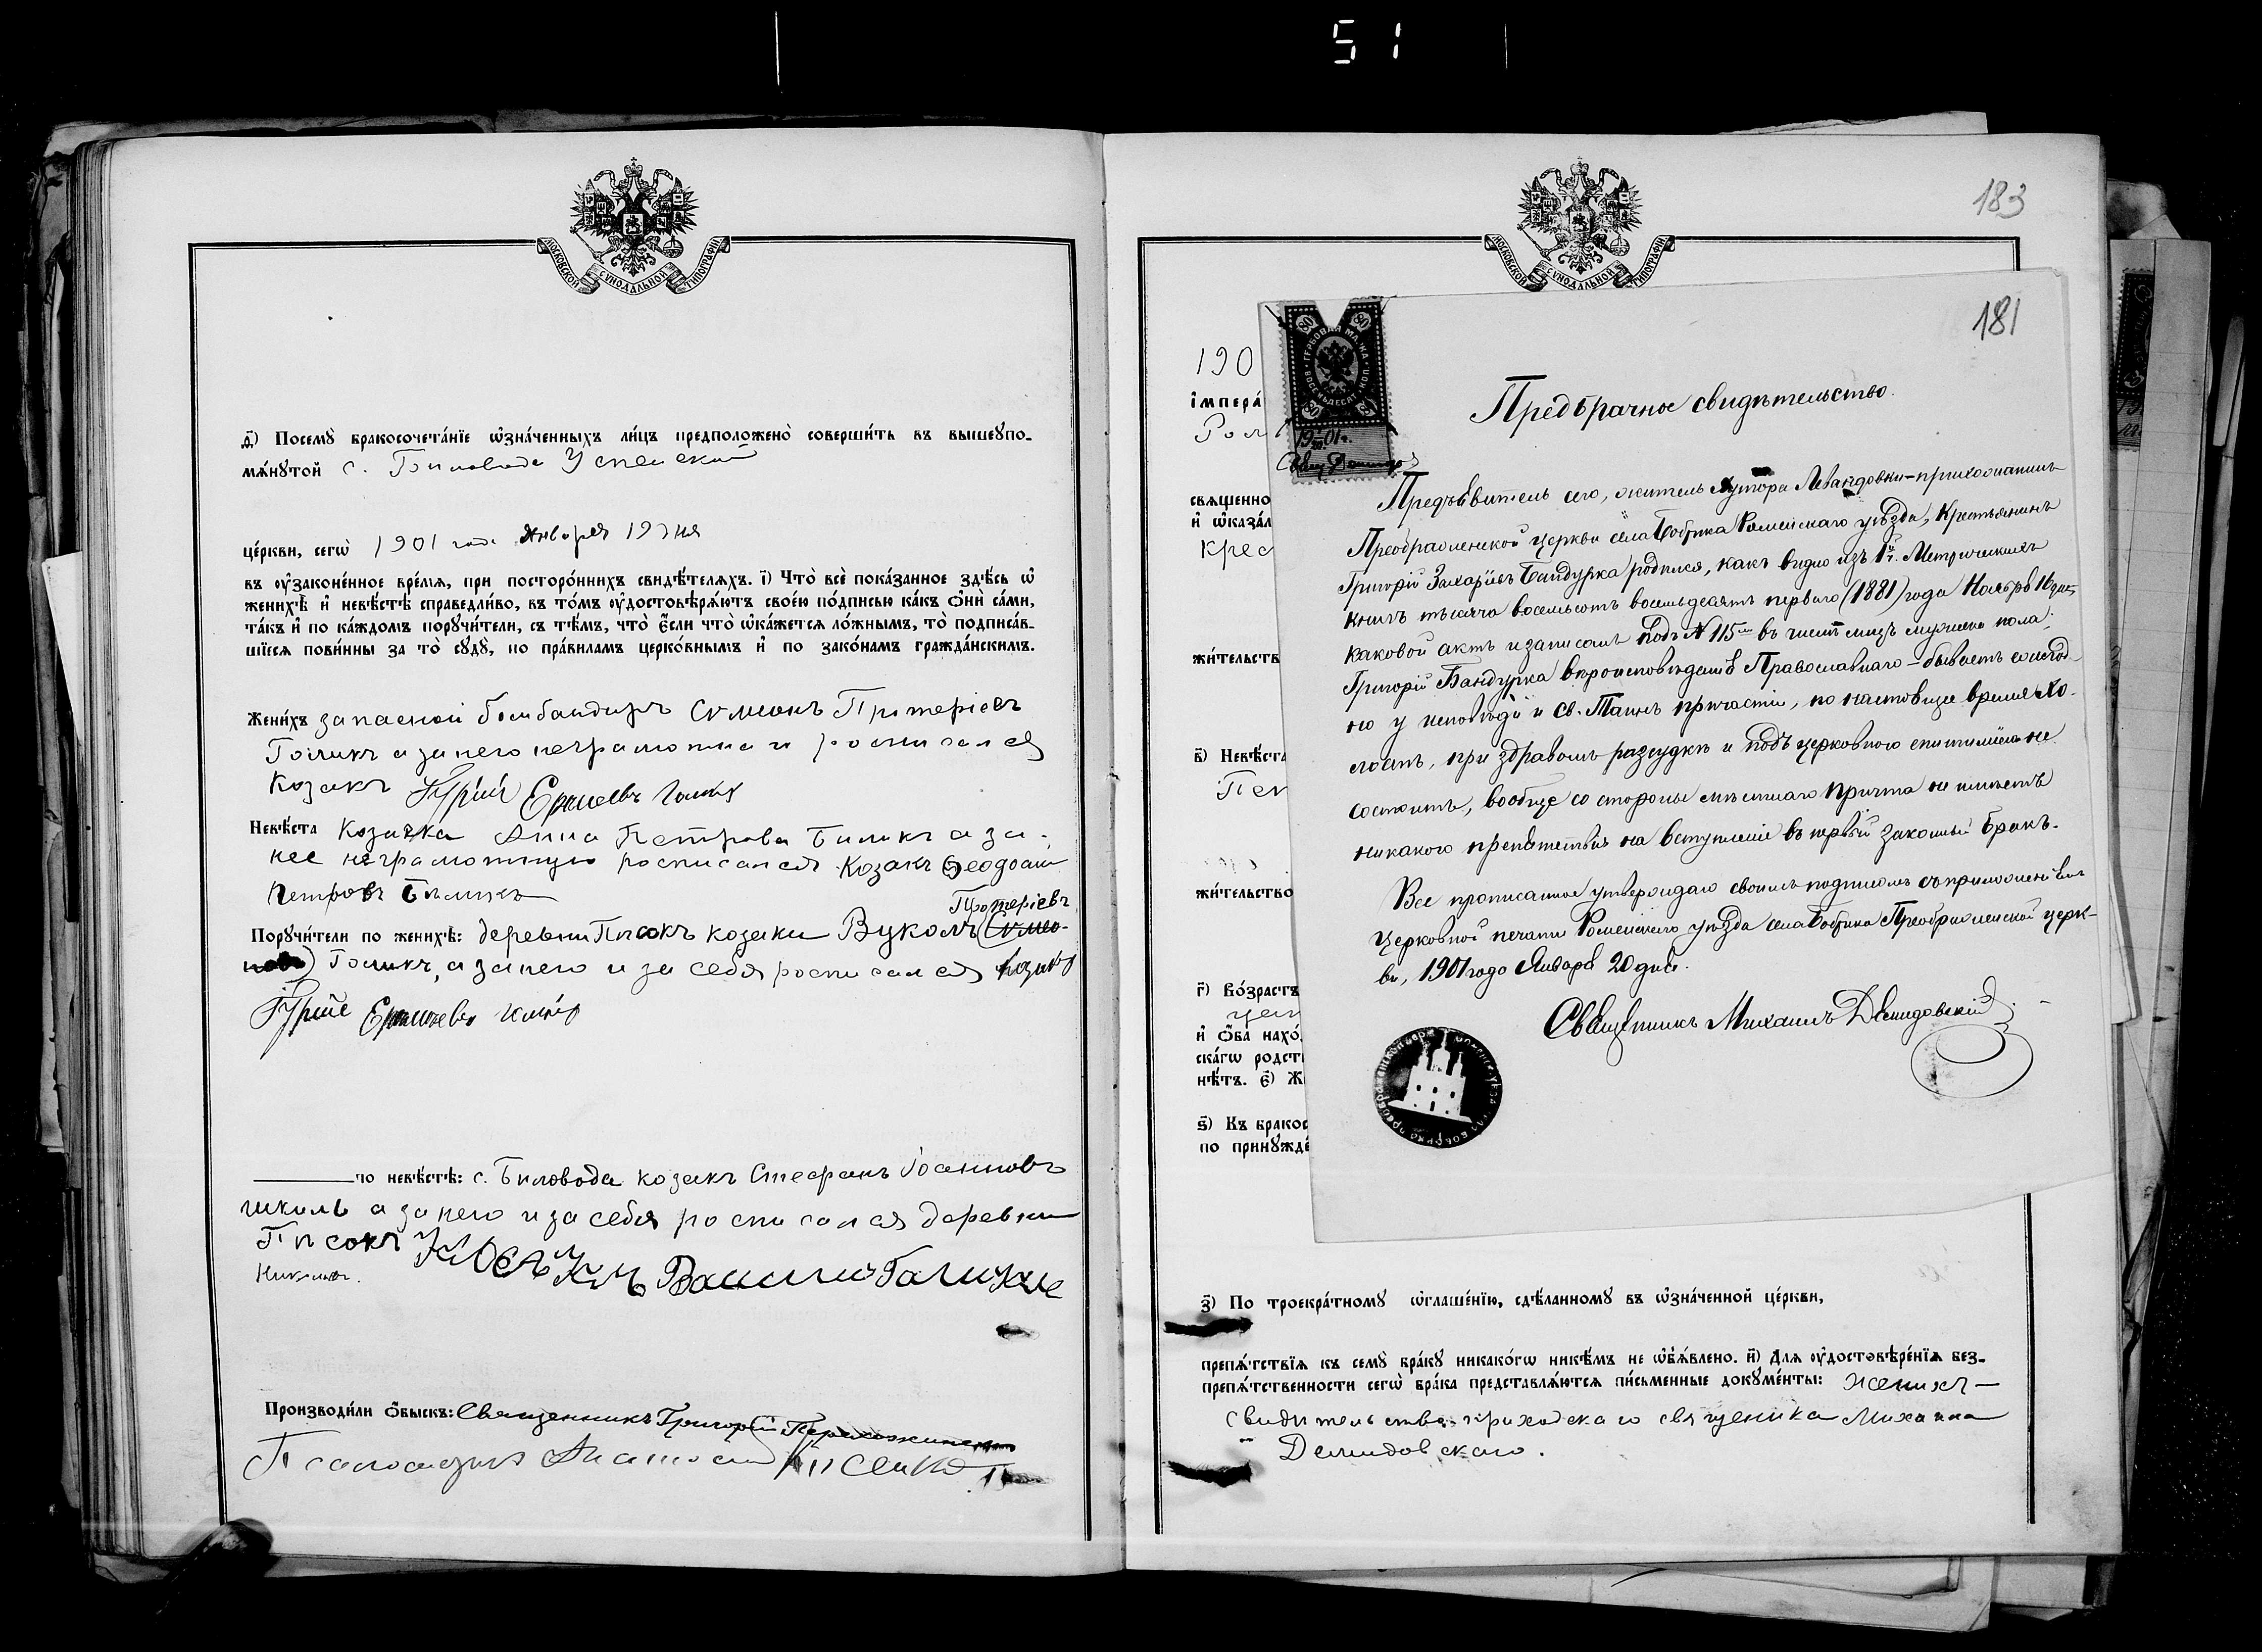 51
МОСКОВСКОЙ СѴНОДАЛЬНОЙ ТИПОГРАФІИ
д҃) Посемꙋ̀ бракосочета́нїе ѡ҆зна́ченныхъ ли́цъ предположено̀ соверши́ть въ вышеꙋпо-
мѧ́нꙋтой с. Биловода Успенской
це́ркви, сегѡ̀ 1901 года Января 19 дня
въ ᲂу҆зако́ненное вре́мѧ, при посторо́ннихъ свидѣ́телѧхъ. і҃) Что̀ всѐ пока́занное здѣ́сь ѡ҆
женихѣ̀ и҆ невѣ́стѣ справедли́во, въ то́мъ ᲂу҆достовѣрѧ́ютъ свое́ю по́дписью ка́къ ѻ҆нѝ са́ми,
та́къ и҆ по ка́ждомъ порꙋчи́тели, съ тѣ́мъ, что̀ є҆́сли что̀ ѡ҆ка́жетсѧ ло́жнымъ, то̀ подписа́в-
шїесѧ пови́нны за то̀ сꙋдꙋ̀, по пра́виламъ церко́внымъ и҆ по зако́намъ гражда́нскимъ.
Жени́хъ запасной бомбандиръ Сумеонъ Протеріевъ
Голикъ а за него неграмотнаго росписался
Козакъ Гурій Ермиевъ Голикъ
Невѣ́ста Козачка Анна Петрова Биликъ а за
нее неграмотную росписался Козакъ Ѳеодосій
Петровъ Биликъ
Протеріевъ
Порꙋчи́тели по женихѣ̀: деревни Пісокъ козаки Вуколъ (Симео-
новъ) Голикъ, а за него и за себя росписался козакъ
Гурій Ермиевъ Голикъ
по невѣ́стѣ: с. Биловода козакъ Стефанъ Іоанновъ
а за него и за себя росписался деревни
Пісокъ Козакъ Василій Голикъ
Производи́ли ѻ҆́быскъ: Священникъ Григорій
Псаломщикъ
183
МОСКОВСКОЙ СѴНОДАЛЬНОЙ ТИПОГРАФІИ
190
і҆мпера́
Ром
свѧще́нно
и҆ ѡ҆каза́л
крес
жи́тельств
в҃) Невѣ́ста
Пен
жи́тельство
г҃) Во́зрастъ
и҆ ѻ҆́ба нахо́
ска́гѡ родст
нѣ́тъ. є҃) Ж
ѕ҃) Къ бракос
по принꙋжде́
181
ГЕРБОВАЯ МАРКА
ВОСЕМЬДЕСЯТ КОП.
80 80
80 80
1901 г.
Предбрачное свидѣтельство.
Предъявитель сего, житель хутора Левандовки – прихожанинъ
Преображенской церкви села Бобрика Роменскаго уѣзда, Крестьянинъ
Григорій Захаріевъ Бандурка родился, какъ видно изъ 1й ч. Метрическихъ
книгъ тысяча восемьсотъ восемьдесятъ перваго (1881) года Ноября 16 дня,
каковой актъ и записанъ подъ № 115мъ въ числѣ лицъ мужеска пола;
Григорій Бандурка вѣроисповѣданія Православнаго – бываетъ ежегод-
но у исповѣди и св. Таинъ причастія, по настоящее время хо-
лостъ, при здравомъ разсудкѣ и подъ церковною епитимією не
состоитъ, вообще со стороны мѣстнаго причта не имѣетъ
никакого препятствія на вступленіе въ первый законный бракъ.
Все прописанное утверждаю своимъ подписомъ съ приложеніемъ
церковной печати Роменскаго уѣзда села Бобрика Преображенской церк-
ви, 1901 года Января 20 дня.
Священникъ Михаилъ Демидовскій
з҃) По троекра́тномꙋ ѡ҆глаше́нїю, сдѣ́ланномꙋ въ ѡ҆зна́ченной це́ркви,
препѧ́тствїѧ къ семꙋ̀ бра́кꙋ никако́гѡ никѣ́мъ не ѡ҆б̾ѧ́влено. и҃) Длѧ ᲂу҆достовѣре́нїѧ без-
препѧ́тственности сегѡ̀ бра́ка представлѧ́ютсѧ пи́сьменные докꙋме́нты: жениха –
свидѣтельство приходскаго священика Михаила
Демидовскаго.